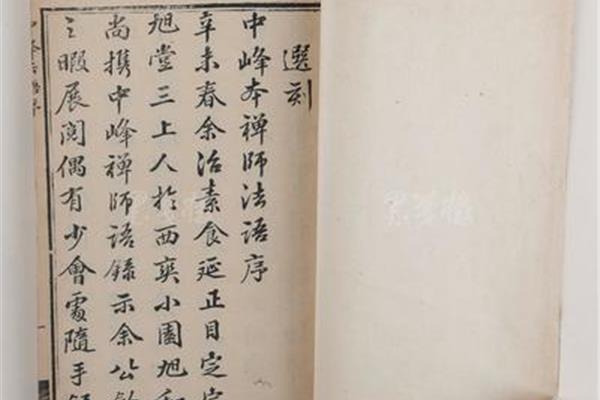 選刻
中峰本禪師法語序
辛未春余治素食延正目定宜
旭堂三上人於西爽小園旭和
尚携中峰禪師語錄示余公餘
之暇展閱偶有少會處隨手